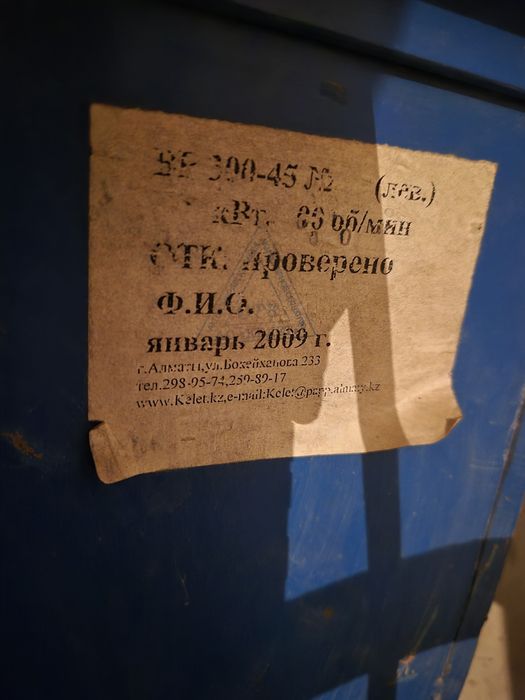 ВР 300-45 № (лев.)
кВт. об/мин
ОТК: проверено
Ф.И.О.
январь 2009 г.
г.Алматы,ул.Бокейханова 233
тел.298-95-74,259-89-17
www.Kelet.kz,e-mail:Kelet@papp.almaty.kz